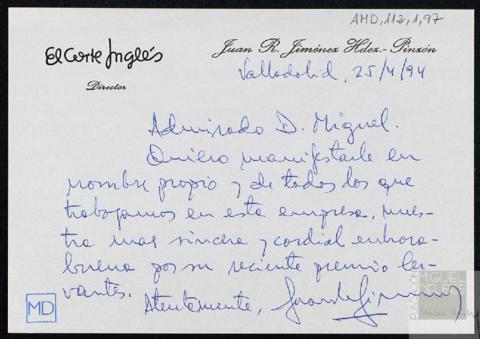 AMD,112,1,97
El Corte Inglés
Juan R. Jiménez Hdez.-Pinzón
Director
Valladolid, 25/4/94
Admirado D. Miguel.
Quiero manifestarle en
nombre propio y de todos los que
trabajamos en esta empresa, nues-
tra mas sincera y cordial enhora-
buena por su reciente premio Cer-
vantes.
Atentamente,
MD
FUNDACIÓN
MIGUEL
DELIBES